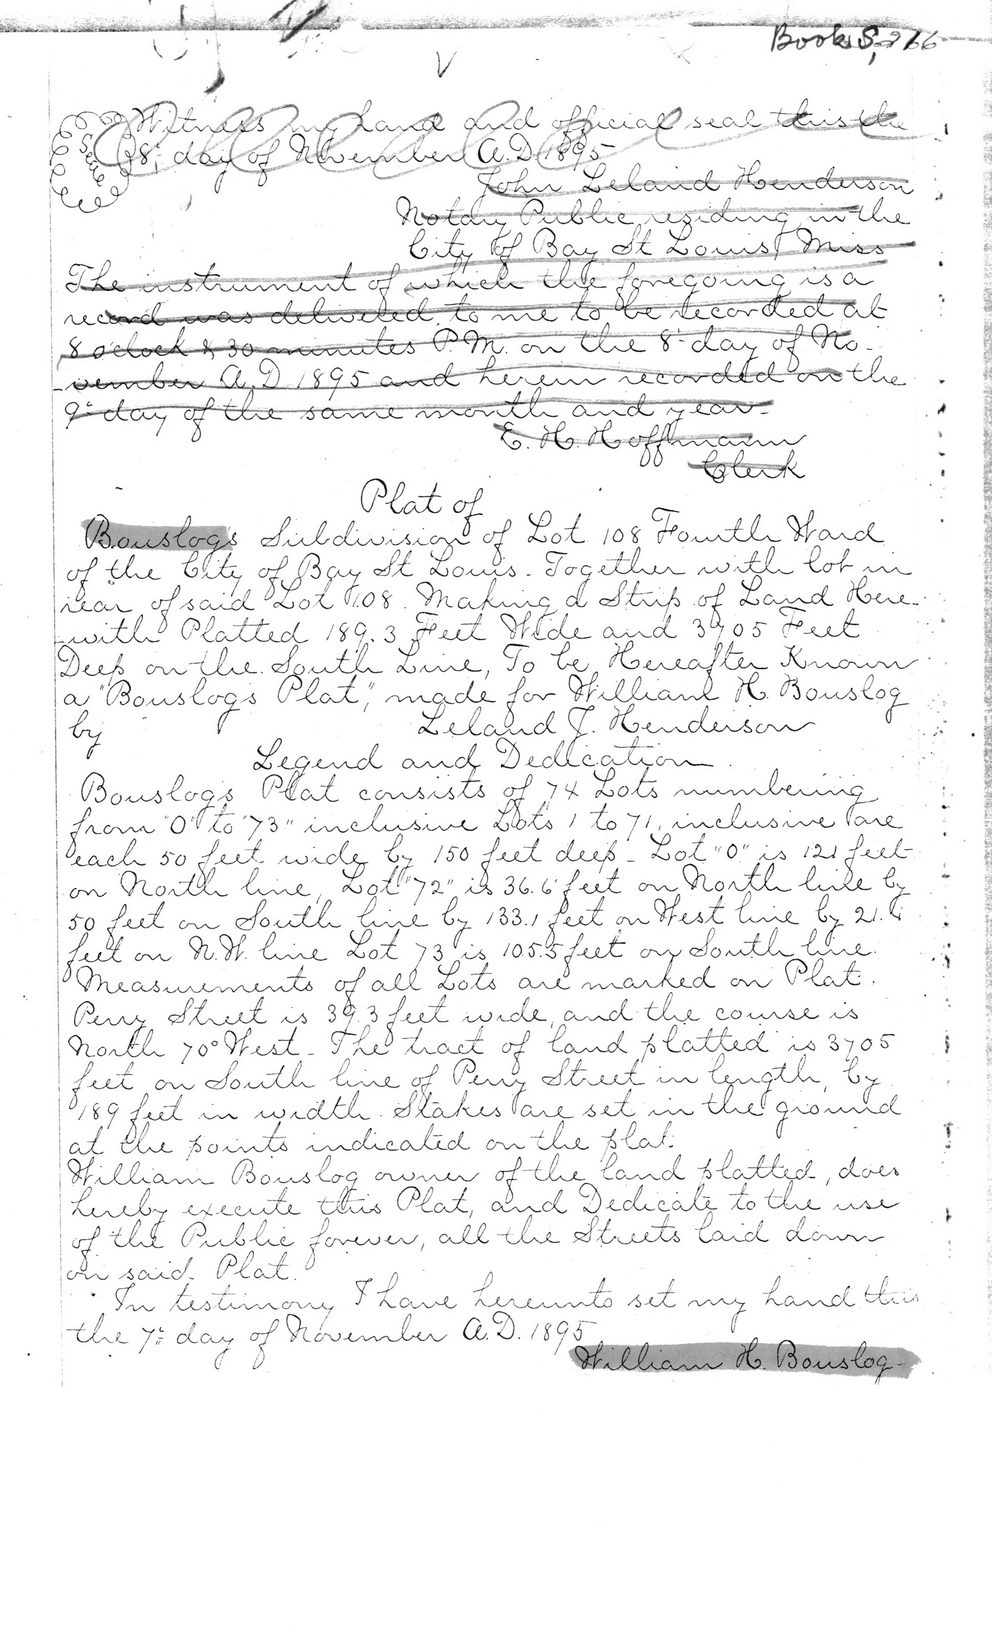 Book S, 266
Witness my hand and official seal this the
Seal 8" day of November A.D. 1895
John Leland Henderson
Notary Public residing in the
City of Bay St Louis, Miss
The instrument of which the foregoing is a
record was delivered to me to be recorded at
8 o'clock & 30 minutes P.M. on the 8" day of No-
vember A.D 1895 and herein recorded on the
9" day of the same month and year-
E. H. Hoffmann
Clerk
Plat of
Bouslogs Subdivision of Lot 108 Fourth Ward
of the City of Bay St Louis. Together with lot in
rear of said Lot 108. Making a Strip of Land Here-
with Platted 189.3 Feet Wide and 3705 Feet
Deep on the South Line, To be Hereafter Known
a "Bouslogs Plat", made for William H. Bouslog
by Leland J. Henderson
Legend and Dedication
Bouslogs Plat consists of 74 Lots numbering
from "0" to "73" inclusive Lots 1 to 71, inclusive are
each 50 feet wide by 150 feet deep - Lot "0" is 121 feet
on North line, Lot "72" is 36.6 feet on North line by
50 feet on South line by 133.1 feet on West line by 21.4
feet on N.W. line Lot 73 is 105.5 feet on South line.
Measurements of all Lots are marked on Plat.
Perry Street is 39.3 feet wide, and the course is
North 70° West - The tract of land platted is 3705
feet on South line of Perry Street in length, by
189 feet in width. Stakes are set in the ground
at the points indicated on the plat.
William Bouslog owner of the land platted, does
hereby execute this Plat, and Dedicate to the use
of the Public forever, all the Streets laid down
on said Plat.
In testimony I have hereunto set my hand this
the 7" day of November A.D. 1895
William H. Bouslog-